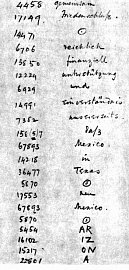 4458 gemeinsam
17149 Friedenschluss.
14471 ⊙
6706 reichlich
13850 finanziell
12224 unterstützung
6929 und
14991 einverständnis
7382 unsererseits.
158(5)7 dass
67893 Mexico.
14218 in
36477 Texas
5870 ⊙
17553 neu
67693 Mexico.
5870 ⊙
5454 AR
16102 IZ
15217 ON
22801 A